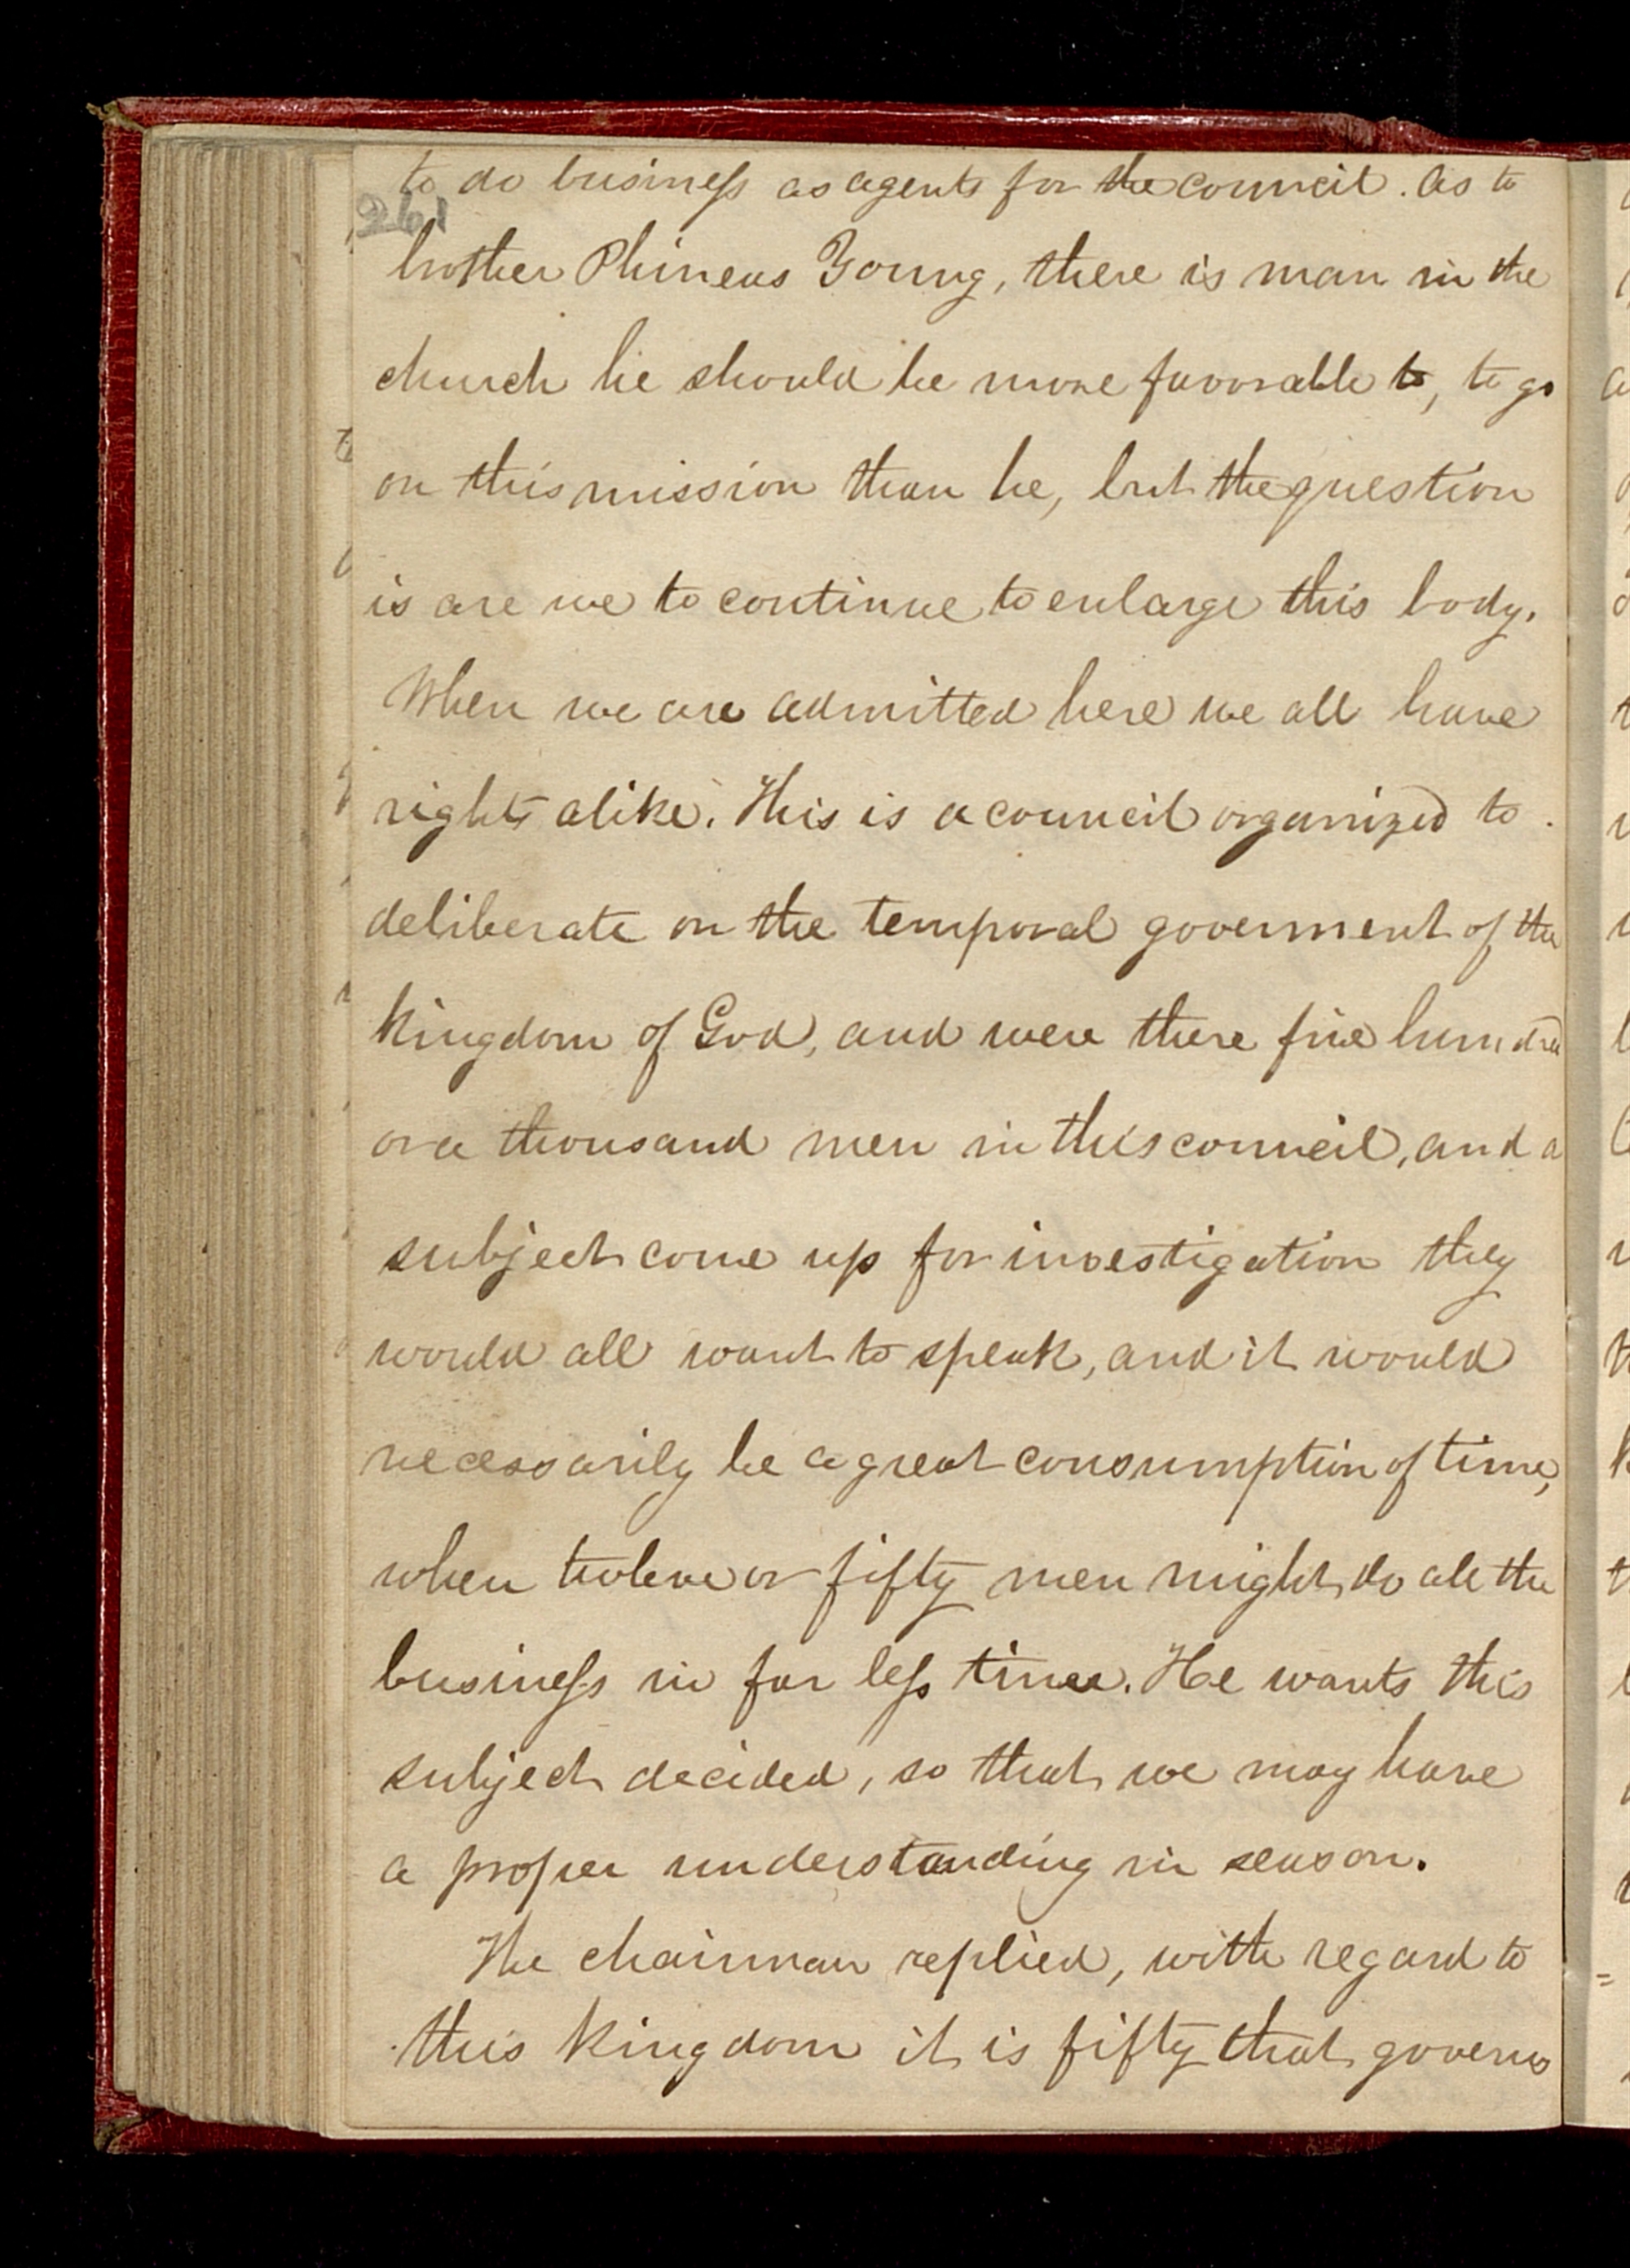 to do business as agents for the council. As to
261
brother Phineas Young, there is man in the
church he should be more favorable to, to go
on this mission than he, but the question
is are we to continue to enlarge this body.
When we are admitted here we all have
rights alike. This is a council organized to
deliberate on the temporal goverment of the
kingdom of God, and were there five hundred
or a thousand men in this council, and a
subject come up for investigation they
would all want to speak, and it would
necessarily be a great consumption of time,
when twelve or fifty men might do all the
business in far less time. He wants this
subject decided, so that we may have
a proper understanding in season.
The chairman replied, with regard to
this kingdom it is fifty that governs